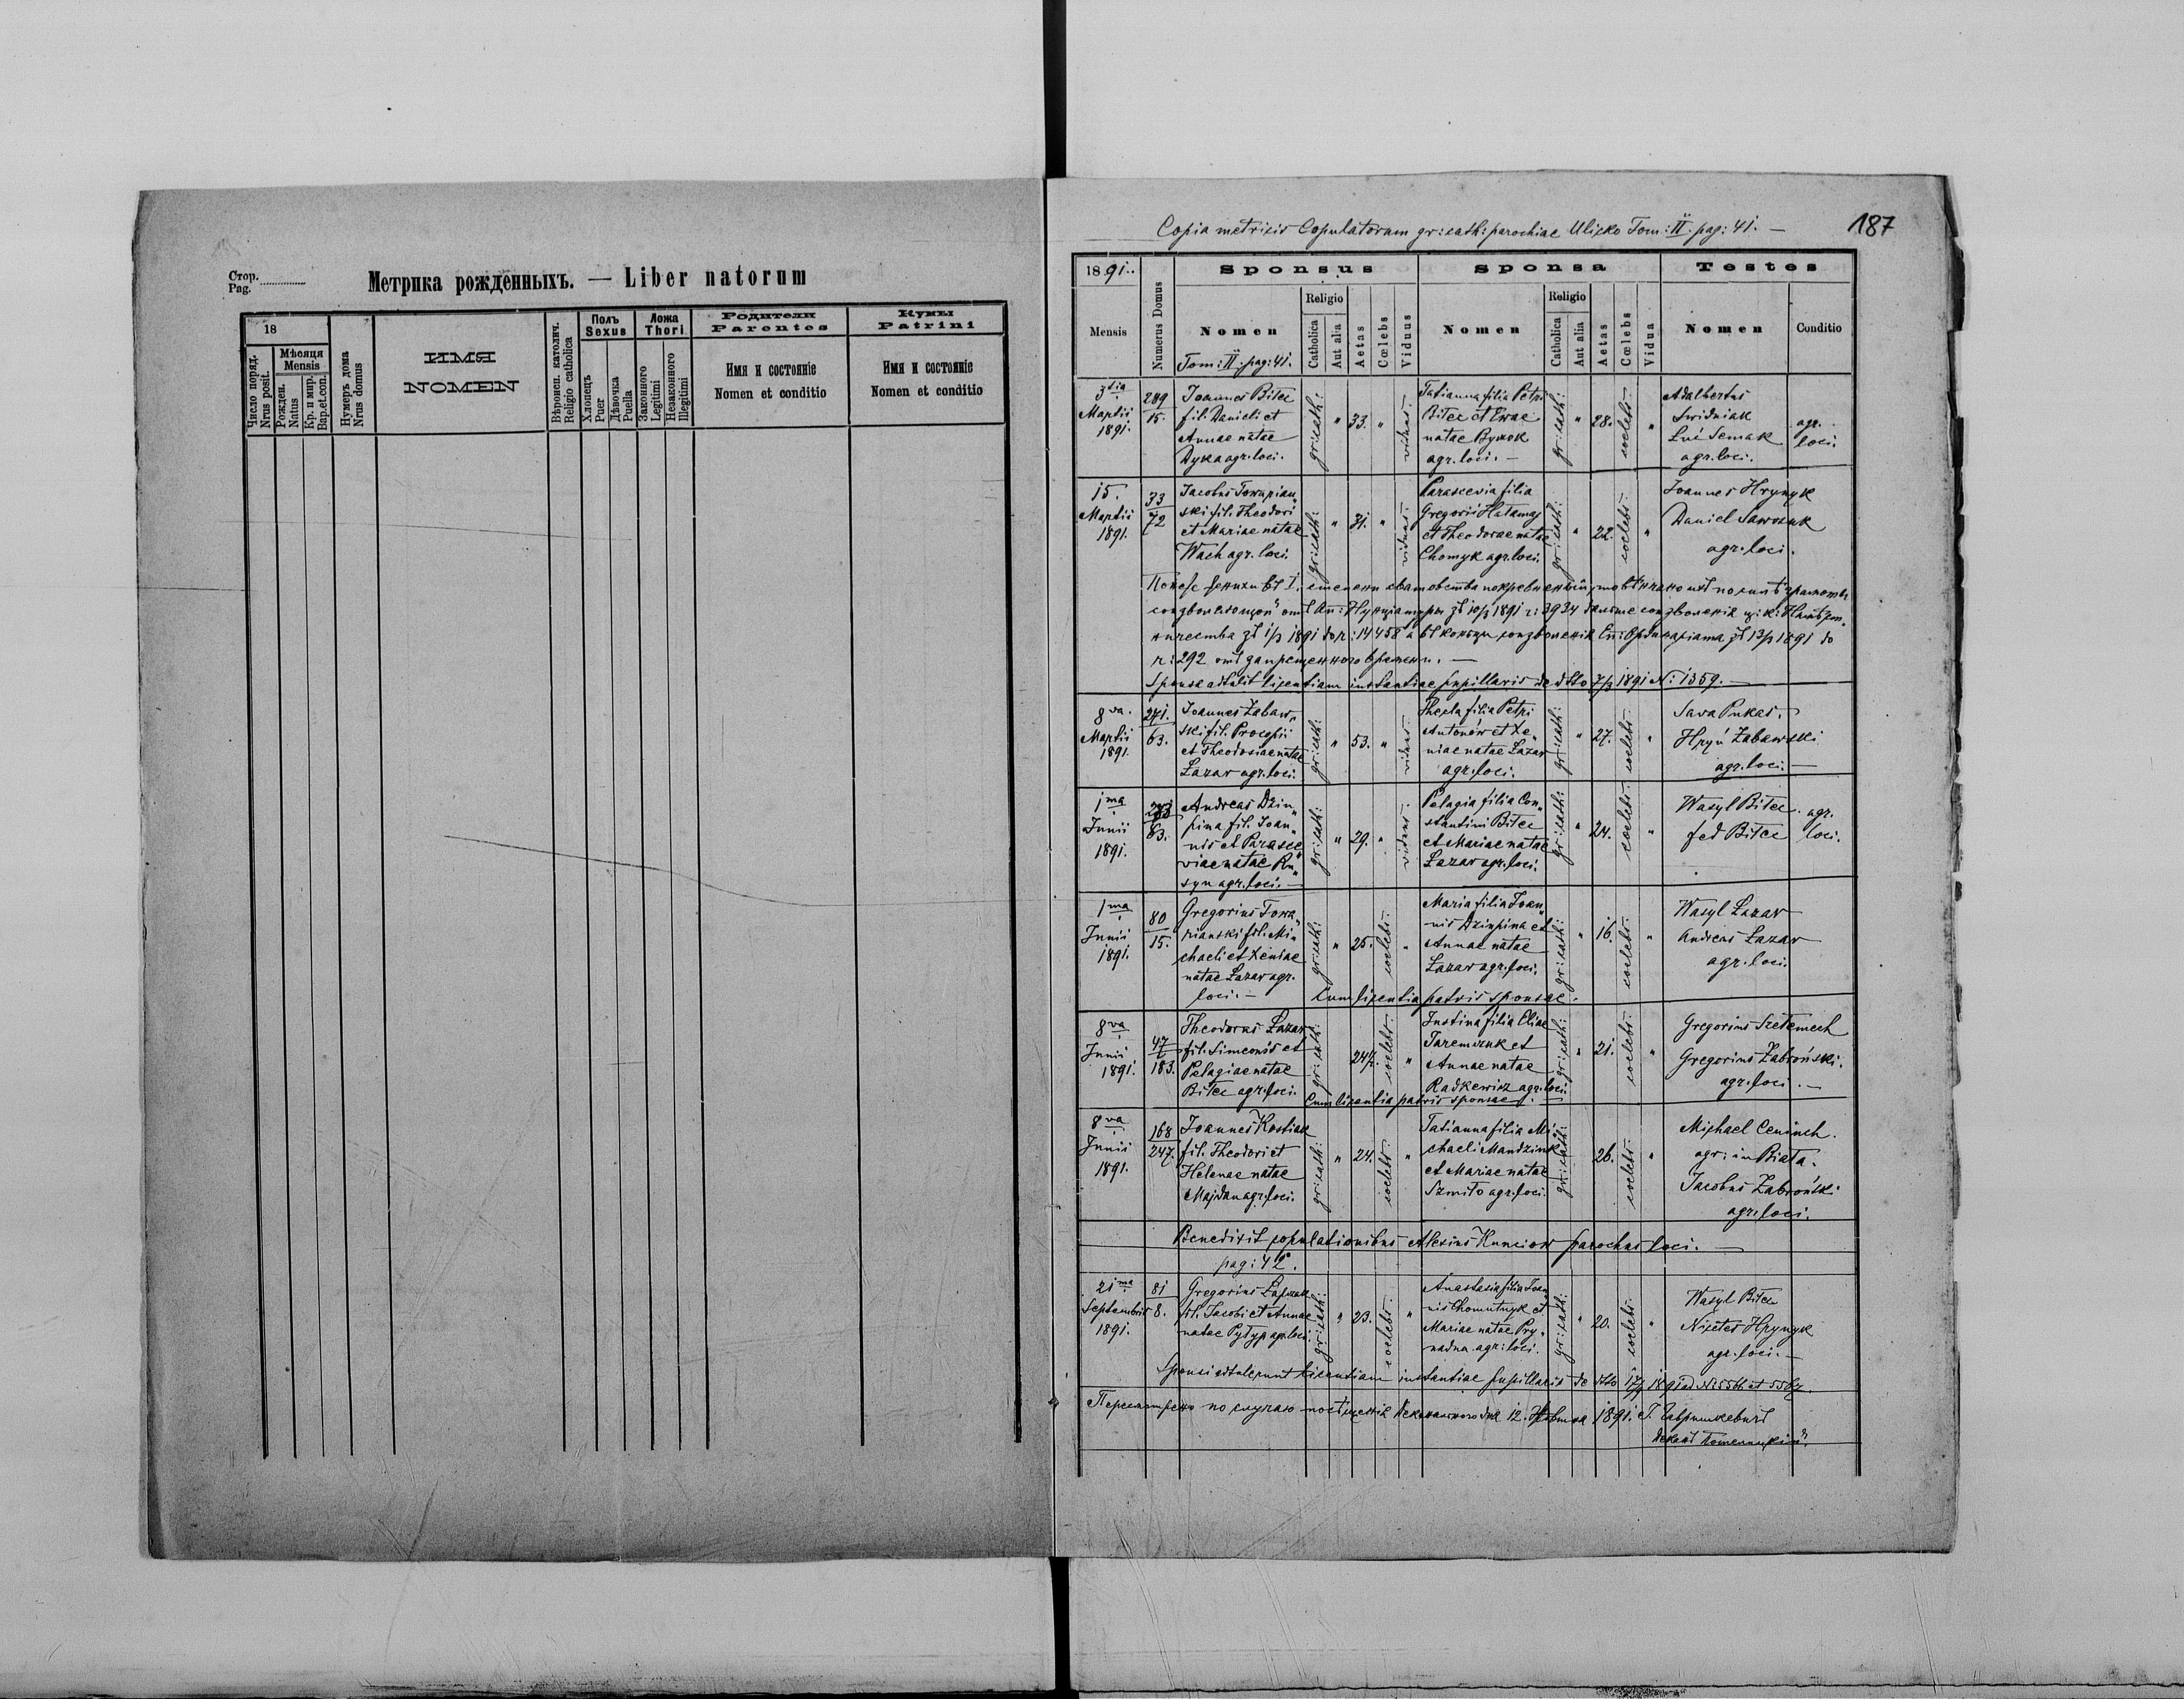 Стор.
Pag.
Метрика рожденныхъ. — Liber natorum
18
Число поряд.
Nrus posit.
Мѣсяця
Mensis
Рожден.
Natus
Кр. и мир.
Bap. et. con.
Нумеръ дома
Nrus domus
ИМЯ
NOMEN
Вѣроисп. католич.
Religio catholica
Полъ
Sexus
Хлопецъ
Puer
Дѣвочка
Puella
Ложа
Thori
Законного
Legitimi
Незаконного
Illegitimi
Родители
Parentes
Имя и состоянie
Nomen et conditio
Кумы
Patrini
Имя и состоянie
Nomen et conditio
Copia metricis Copulatorum gr: cath: parochiae Ulicko Tom: II. pag: 41. —
187
1891..
Mensis
Numerus Domus
Sponsus
Nomen
Tom: II. pag: 41.
Religio
Catholica
Aut alia
Aetas
Cœlebs
Viduus
Sponsa
Nomen
Religio
Catholica
Aut alia
Aetas
Cœlebs
Vidua
Testes
Nomen
Conditio
3tia
Martii
1891.
289
15.
Joannes Bitec
fil. Danieli et
Annae natae
Dyka agr. loci.
gr: cath:
"
33.
"
viduus
Tatianna filia Petri
Bitec et Evae
natae
agr. loci. —
gr: cath:
"
28.
coelebs
"
Adalbertus
Swidniak
Luć Semak
agr. loci.
agr.
loci.
15.
Martii
1891.
33
72
Jacobus Towarian„
ski fil. Theodori
et Mariae natae
Wach agr. loci.
gr: cath:
"
31.
"
viduus
Parascevia filia
Gregorii Hatamaj
et Theodorae natae
Chomyk agr. loci.
gr: cath:
"
22.
coelebs
"
Joannes Hrynyk
Daniel Sawczuk
agr. loci.
1891 ч: 3934
1891 до ч: 14458 а въ
1891 до
ч: 292 отъ запрещенного времени. —
Sponsa adtulit licentiam instantiae pupillaris de dtto 7/3 1891 N: 1359. —
8va.
Martii
1891.
271.
63.
Joannes Zabaw„
ski fil. Procopii
et Theodosiae natae
Łazar agr. loci.
gr: cath:
"
53.
"
viduus
Thecla filia Petri
Antonów et Xe„
niae natae Łazar
agr. loci.
gr: cath:
"
27.
coelebs
"
Sava Pukas.
Hryń Zabawski
agr. loci. —
1ma
Junii
1891.
63.
Andreas Dzin„
pina fil. Joan„
nis et Parasce„
viae natae Ru„
syn agr. loci. —
gr: cath:
"
29.
"
viduus
Pelagia filia Con„
stantini Bitec
et Mariae natae
Łazar agr. loci.
gr: cath:
"
24.
coelebs
"
Wasyl Bitec
fed Bitec
agr.
loci.
1ma
Junii
1891.
80
15.
Gregorius Towa„
rianski fil. Mi„
chaeli et Xeniae
natae Łazar agr.
loci. —
gr: cath:
"
25.
coelebs
"
Maria filia Joan„
nis Dzinpina et
Annae natae
Łazar agr. loci.
gr: cath:
"
16.
coelebs
"
Wasyl Łazar
Andreas Łazar
agr. loci.
Cum licentia patris sponsae.
8va
Junii
1891.
47
183.
Theodorus Łazar
fil. Simeonis et
Pelagiae natae
Bitec agr. loci.
gr: cath:
24
coelebs
"
Justina filia Eliae
Taremczuk et
Annae natae
Radkewicz agr. loci.
gr: cath:
"
21.
coelebs
"
Gregorius Szetemech
Gregorius Zabroński.
agr. loci. —
Cum licentia patris sponsae. —
8va
Junii
1891.
168
247.
Joannes Kostiak
fil. Theodori et
Helenae natae
Majdan agr. loci.
gr: cath:
"
24.
coelebs
"
Tatianna filia Mi„
chaeli Mandziuk
et Mariae natae
Szmiło agr. loci.
gr: cath:
26.
coelebs
"
Michael Ceniuch.
agr: in Biała.
Jacobus Zabroński
agr. loci.
Benedixit copulationibus Alexius Kunciow parochus loci. —
pag: 42.
21ma
Septembris
1891.
81
8.
Gregorius
fil. Jacobi et Annae
natae Pytyp agr. loci.
gr: cath:
"
23.
coelebs
"
Anastasia filia Joan„
nis Chomutnyk et
Mariae natae Pry„
nadna agr: loci.
gr: cath:
"
20.
coelebs
"
Wasyl Bitec
Nicetes Hrynyk
agr. loci. —
Sponsi adtulerunt licentiam instantiae pupillaris de dtto
Пересмотрено по случаю посѣщенiя деканального дня 12. 1891.